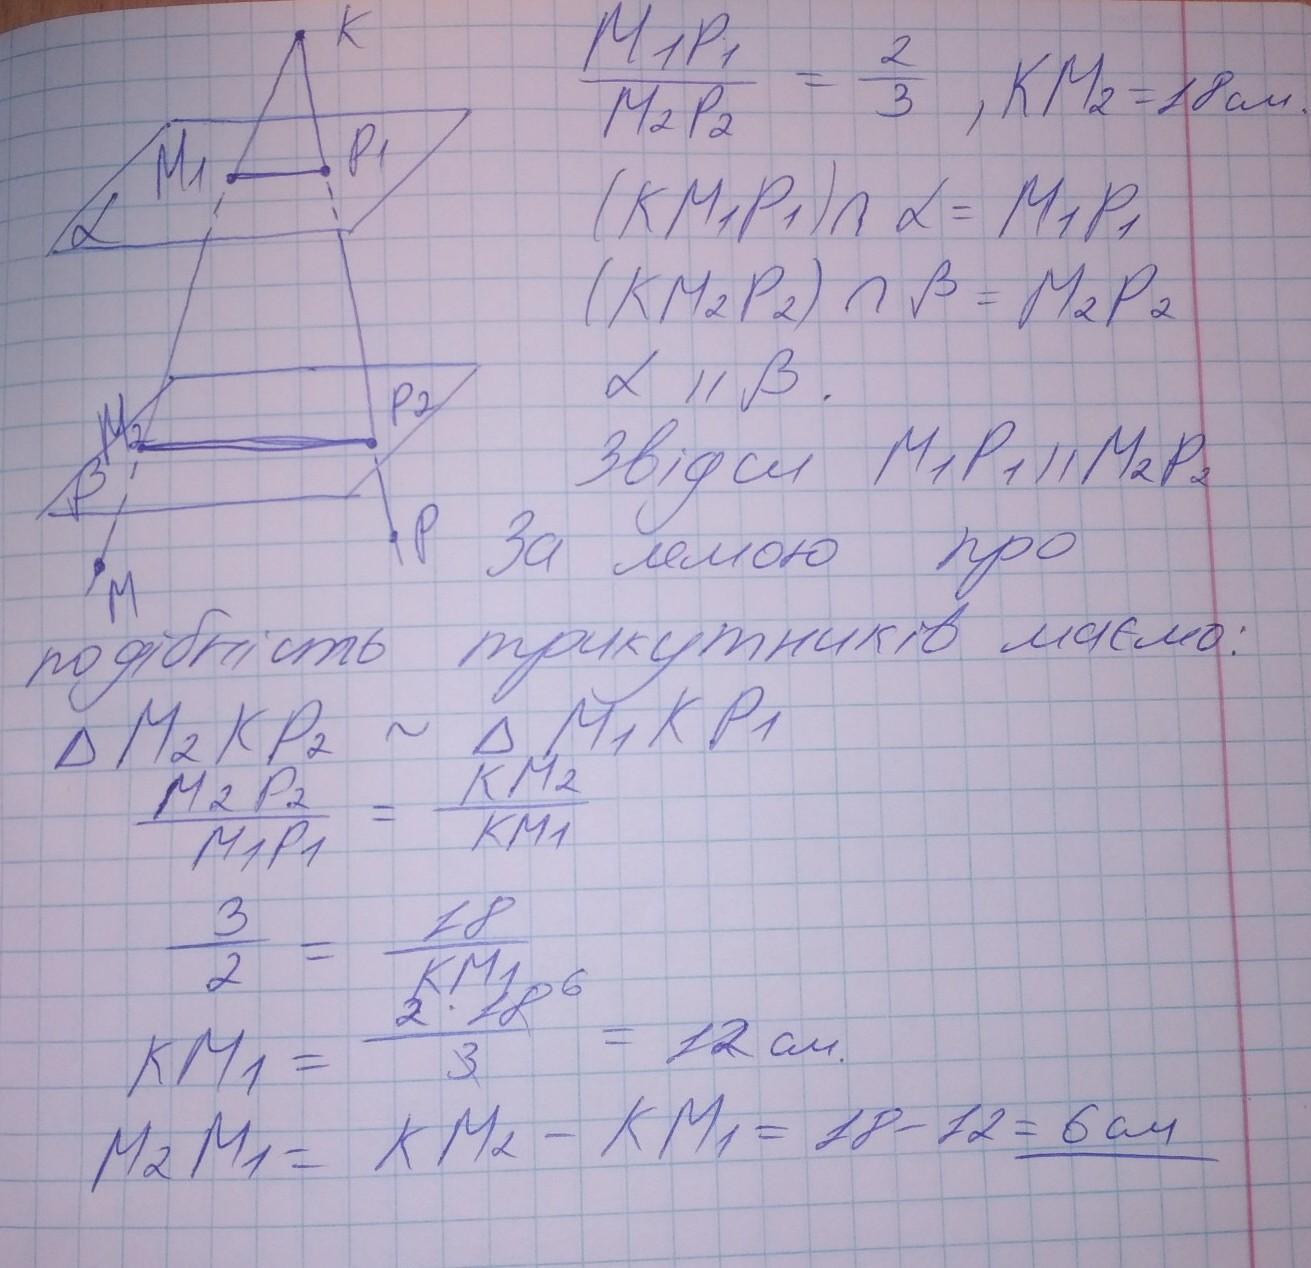 K
M1P1/M2P2 = 2/3, KM2 = 18 см.
M1 P1
α
(KM1P1) ∩ α = M1P1
(KM2P2) ∩ β = M2P2
α || β.
M2 P2
β
Звідси M1P1 || M2P2
M P
За лемою про
подібність трикутників маємо:
Δ M2KP2 ~ Δ M1KP1
M2P2/M1P1 = KM2/KM1
3/2 = 18/KM1
KM1 = 2·18 6/3 = 12 см.
M2M1 = KM2 - KM1 = 18-12 = 6 см